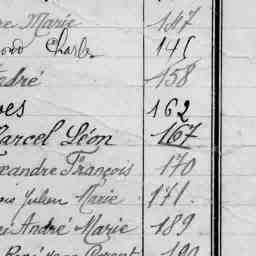 re Marie 147
ond Charles 141
André 158
ves 162
Marcel Léon 167
exandre François 170
ois Julien Marie 171.
ri André Marie 189
190